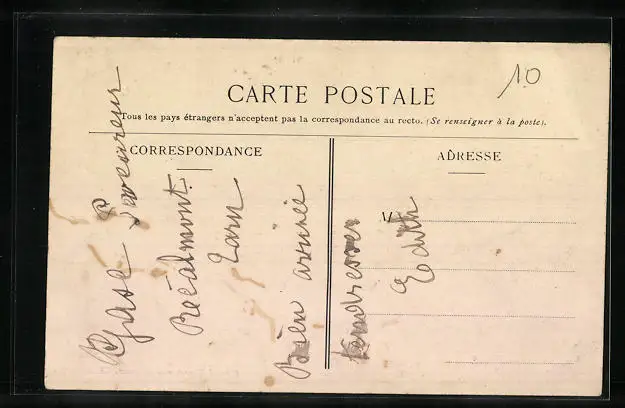 10
CARTE POSTALE
Tous les pays étrangers n'acceptent pas la correspondance au recto. (Se renseigner à la poste).
CORRESPONDANCE
ADRESSE
M
Réalmont
Tarn
Bien arrivée
tendresses
Edith